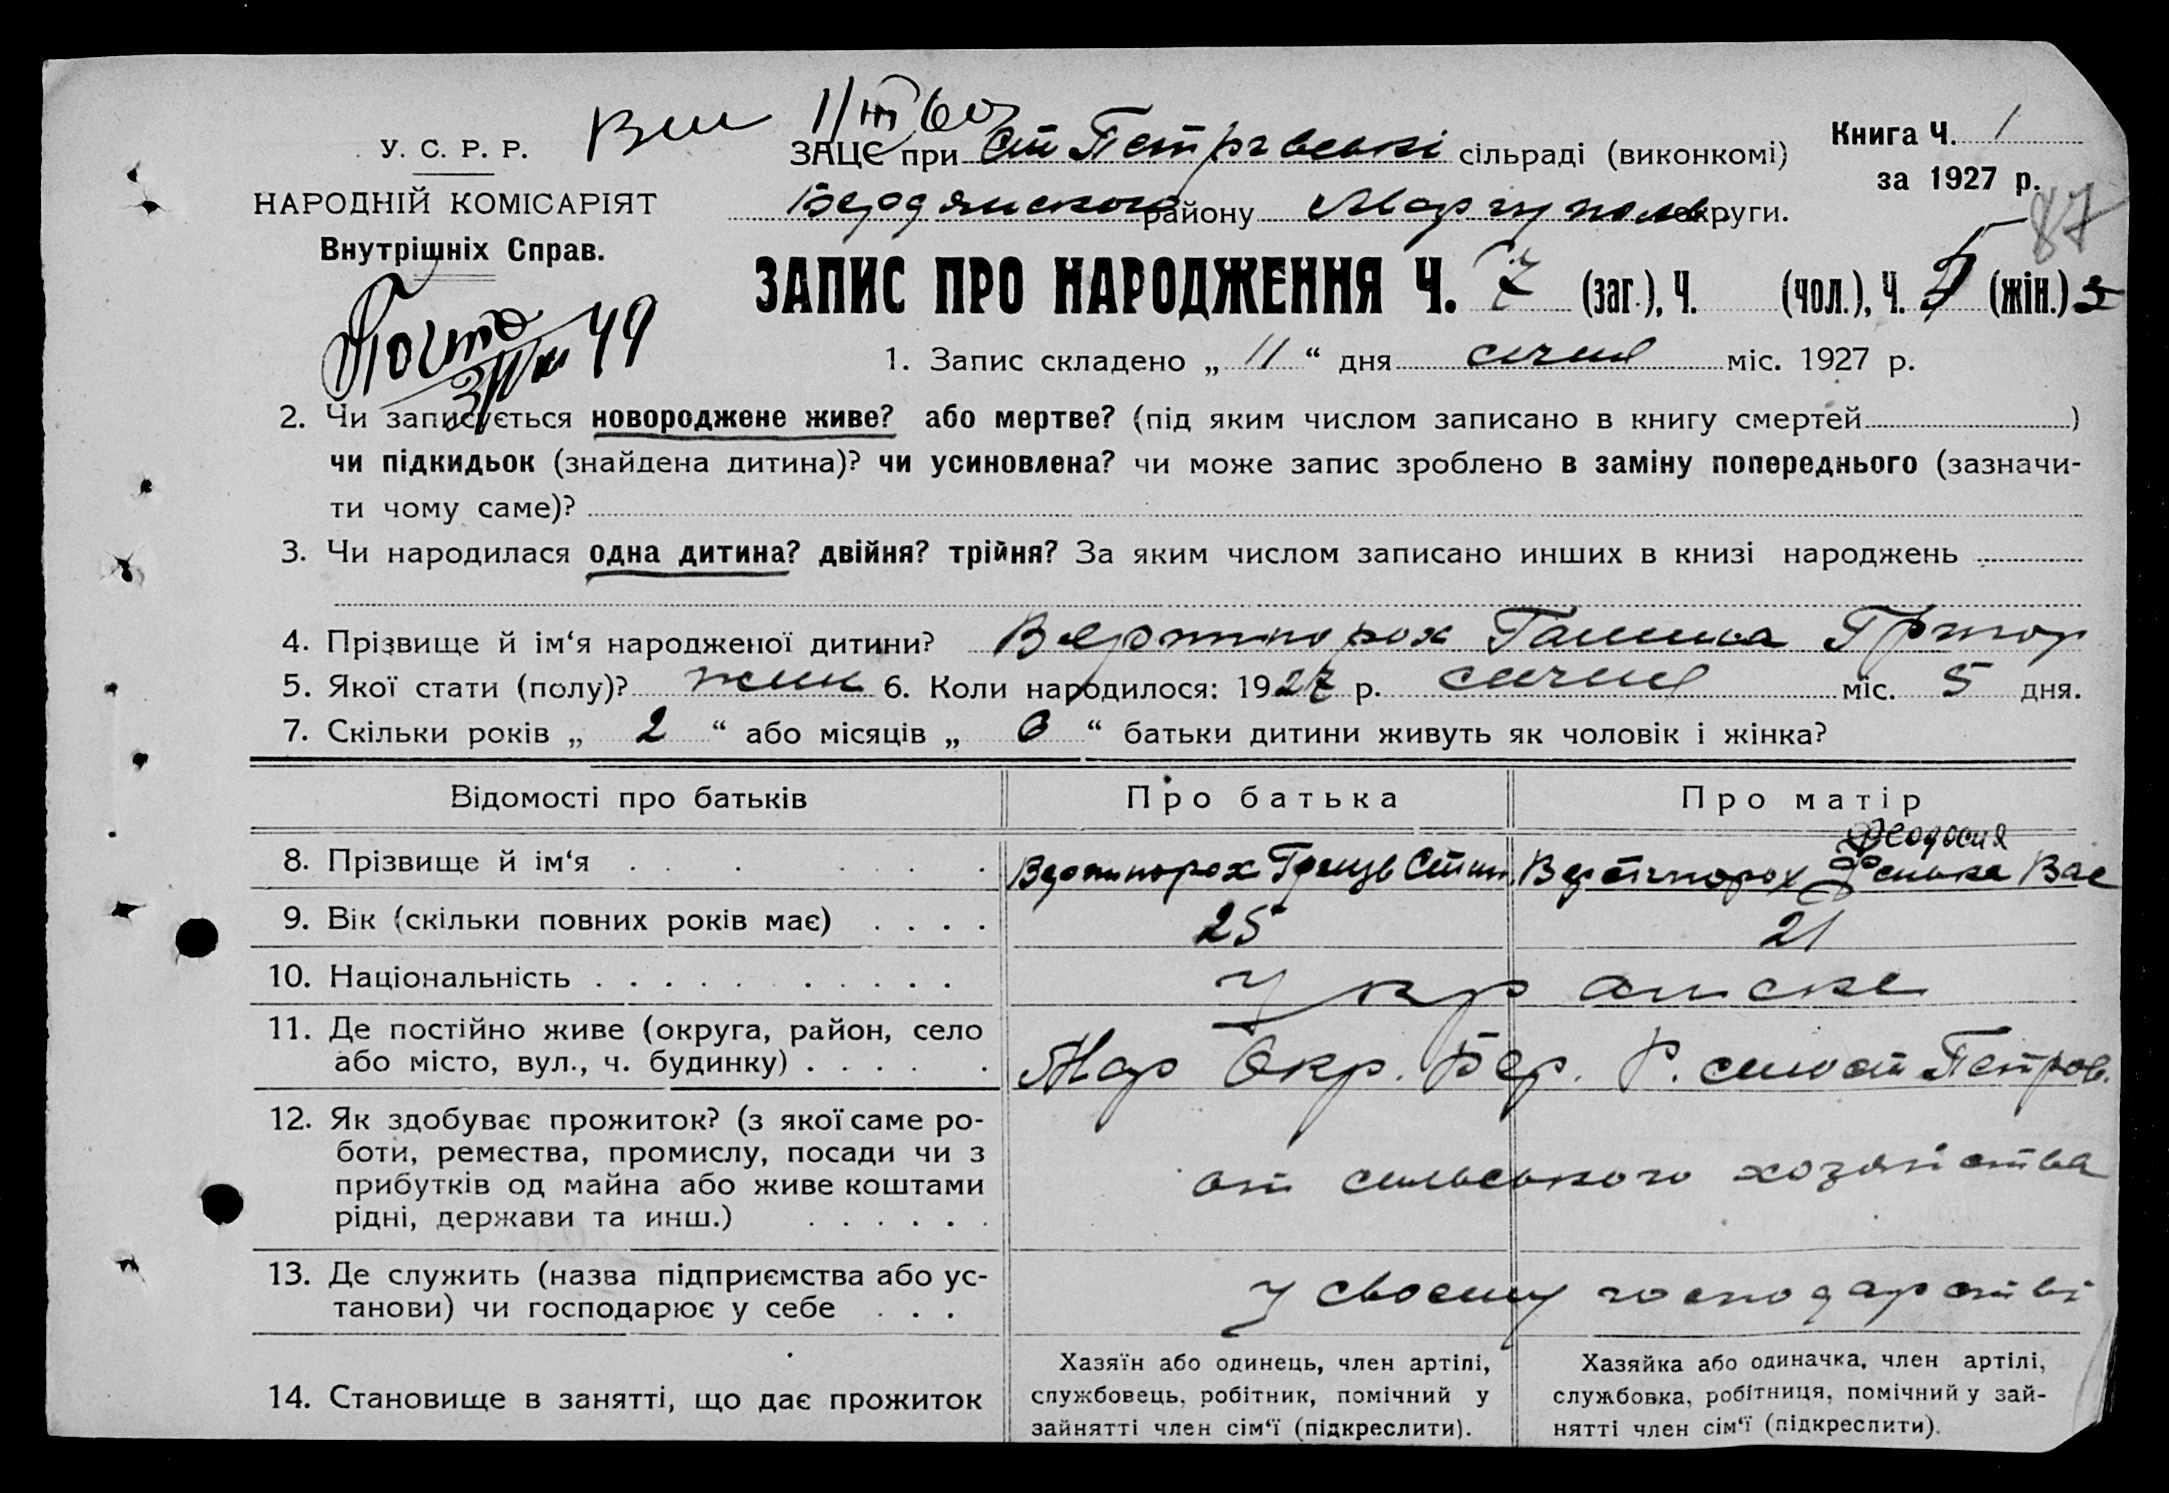 11/III 60
У. С. Р. Р.
ЗАЦЄ при Ст Петрівські сільраді (виконкомі)
Книга Ч. 1
за 1927 р.
87
НАРОДНІЙ КОМІСАРІЯТ
Бердянського району Маріупольс округи.
Внутрішніх Справ.
ЗАПИС ПРО НАРОДЖЕННЯ Ч. 7 (заг.), Ч. (чол.), Ч. 5 (жін.) 5
49
1. Запис складено „ 11 “ дня січня міс. 1927 р.
2. Чи записується новороджене живе? або мертве? (під яким числом записано в книгу смертей )
чи підкидьок (знайдена дитина)? чи усиновлена? чи може запис зроблено в заміну попереднього (зазначи-
ти чому саме)?
3. Чи народилася одна дитина? двійня? трійня? За яким числом записано инших в книзі народжень
4. Прізвище й ім‘я народженої дитини? Вертипорох Галина Григор
5. Якої стати (полу)? жин 6. Коли народилося: 1927 р. січня міс. 5 дня.
7. Скільки років „ 2 “ або місяців „ 6 “ батьки дитини живуть як чоловік і жінка?
Відомості про батьків Про батька Про матір
Феодосия
8. Прізвище й ім‘я . . . . . . . Вертипорох Грицъ Степ Вертипорох Фенька Вас
9. Вік (скільки повних років має) . . . . 25 21
10. Національність . . . . . . . . . . . Украинске
11. Де постійно живе (округа, район, село
або місто, вул., ч. будинку) . . . . . Мар Окр. Бер. Р. село ст Петров.
12. Як здобуває прожиток? (з якої саме ро-
боти, ремества, промислу, посади чи з
прибутків од майна або живе коштами
рідні, держави та инш.) . . . . . .
от сильського хозяйства
13. Де служить (назва підприємства або ус-
танови) чи господарює у себе . . .
у своему господарстві
14. Становище в занятті, що дає прожиток
Хазяїн або одинець, член артілі,
службовець, робітник, помічний у
зайнятті член сім‘ї (підкреслити).
Хазяйка або одиначка, член артілі,
службовка, робітниця, помічний у зай-
нятті член сім‘ї (підкреслити).